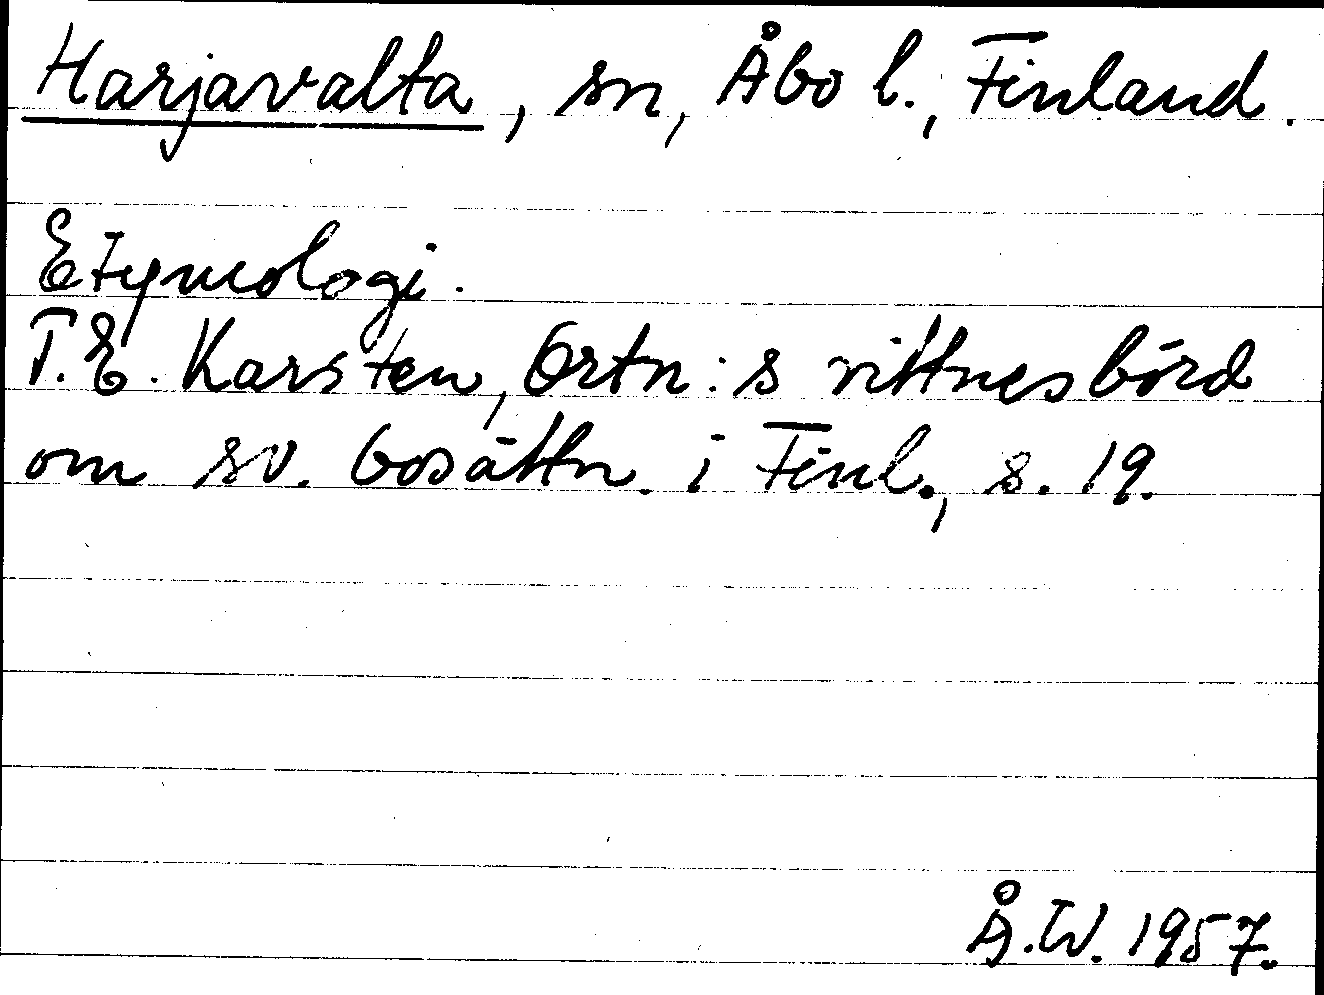 Harjavalta, sn, Åbo l., Finland.
Etymologi.
T.E. Karsten, Ortn:s vittnesbörd
om sv. bosättn. i Finl., s. 19.
Å.W. 1957.